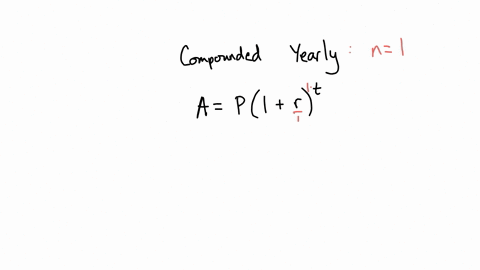 Compounded Yearly : n = 1
A = P(1 + r/1)^1·t